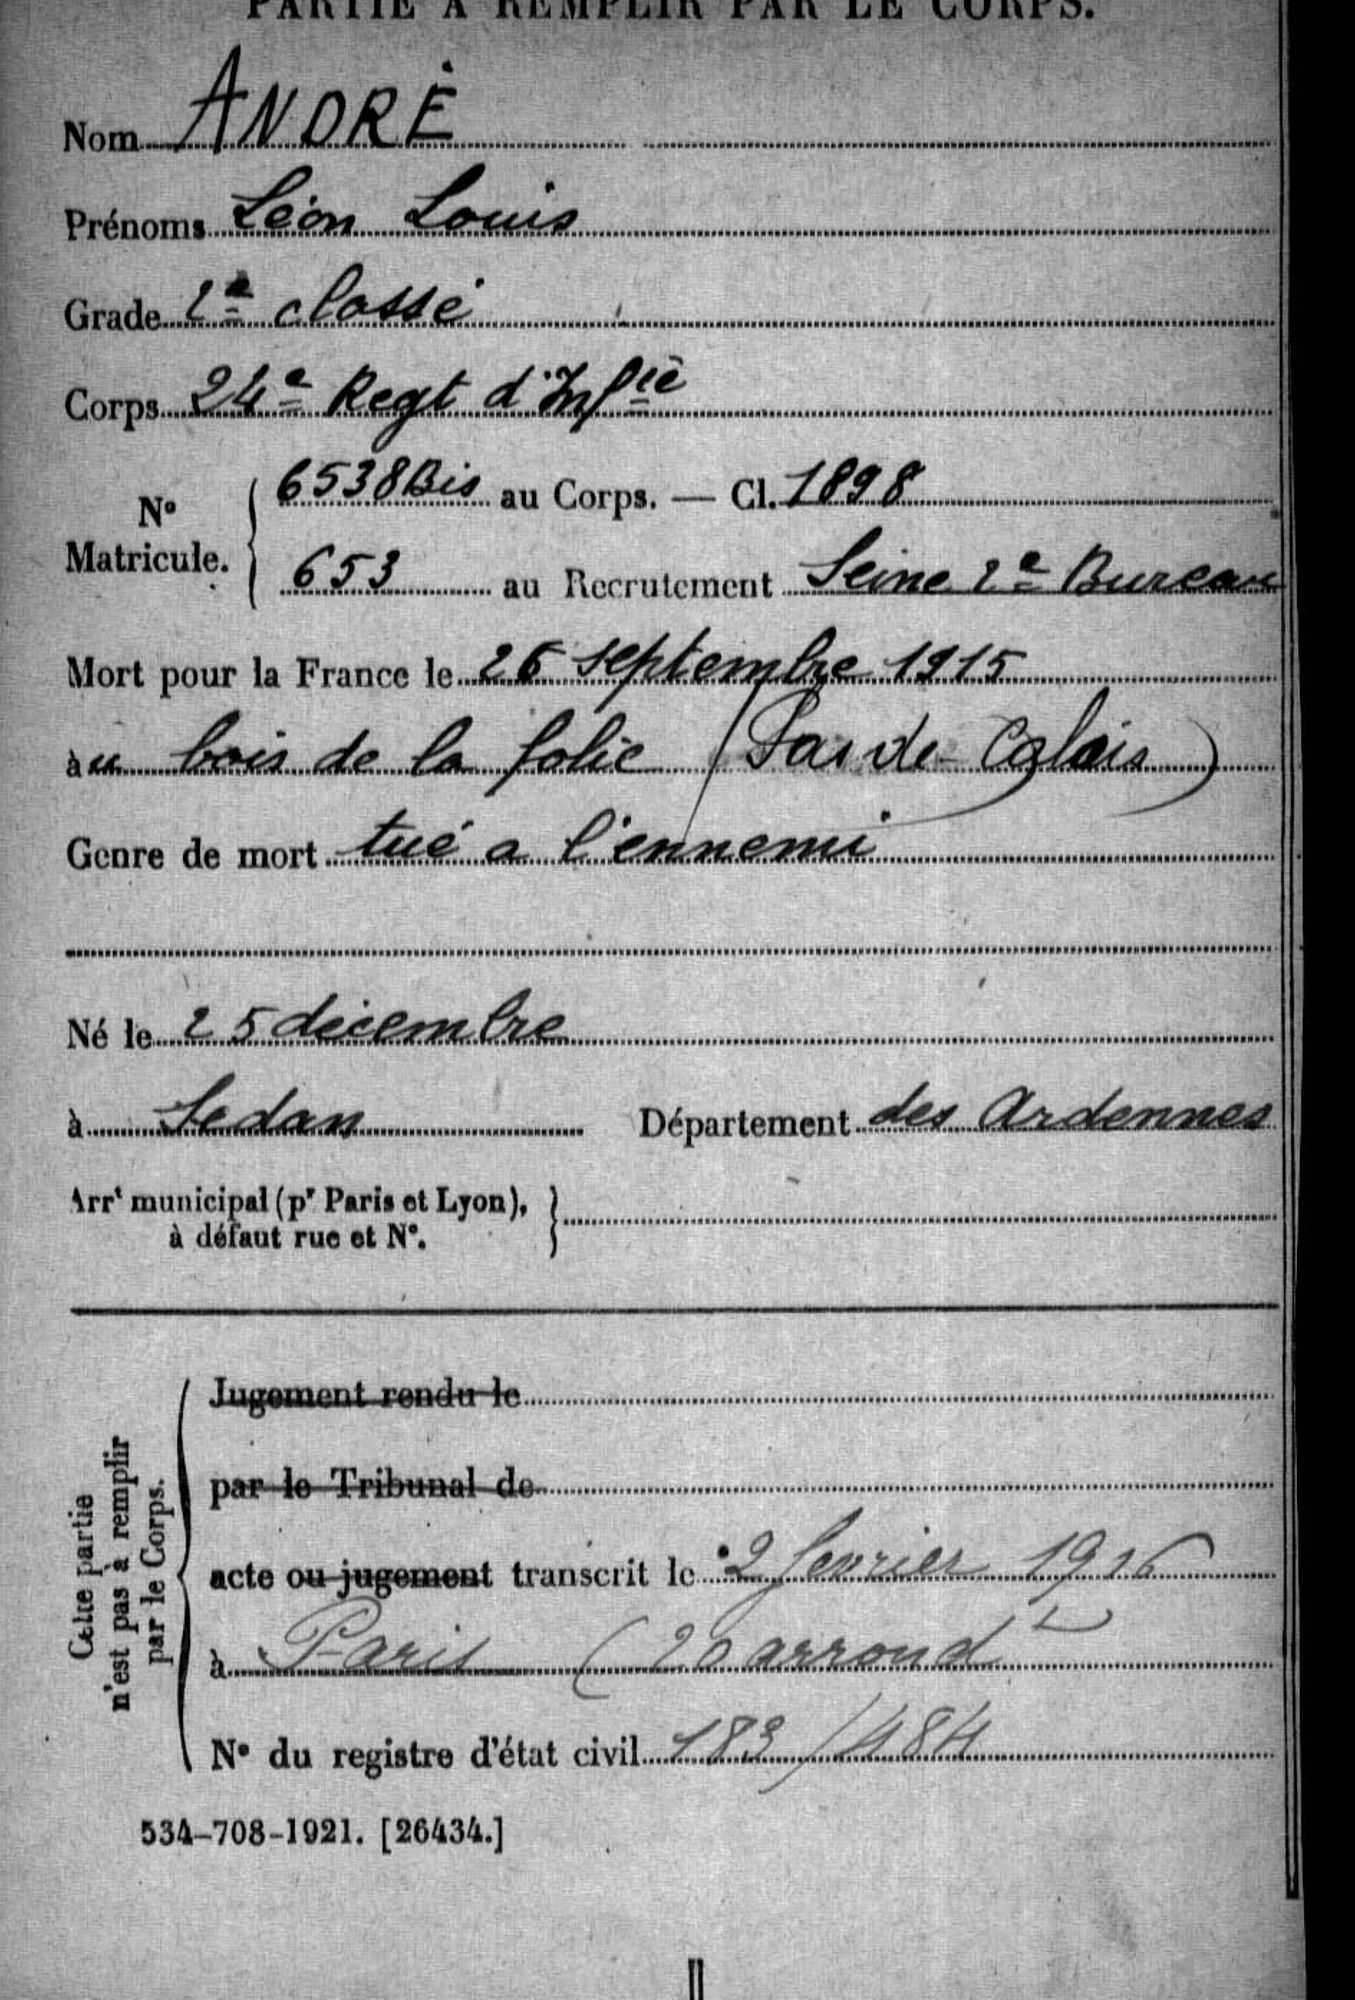 PARTIE À REMPLIR PAR LE CORPS.
Nom ANDRÉ
Prénoms Léon Louis
Grade 2e classe
Corps 24e Regt d'Infie
No Matricule. 6538Bis au Corps. — Cl. 1898
653 au Recrutement Seine 2e Bureau
Mort pour la France le 26 septembre 1915
au bois de la folie (Pas de-Calais)
Genre de mort tué a l'ennemi
Né le 25 décembre
à Sedan Département des Ardennes
Arrt municipal (pr Paris et Lyon),
à défaut rue et No.
Cette partie
n'est pas à remplir
par le Corps.
Jugement rendu le
par le Tribunal de
acte ou jugement transcrit le 2 fevrier 1916
à Paris (20 arrond
No du registre d'état civil 183/484
534-708-1921. [26434.]